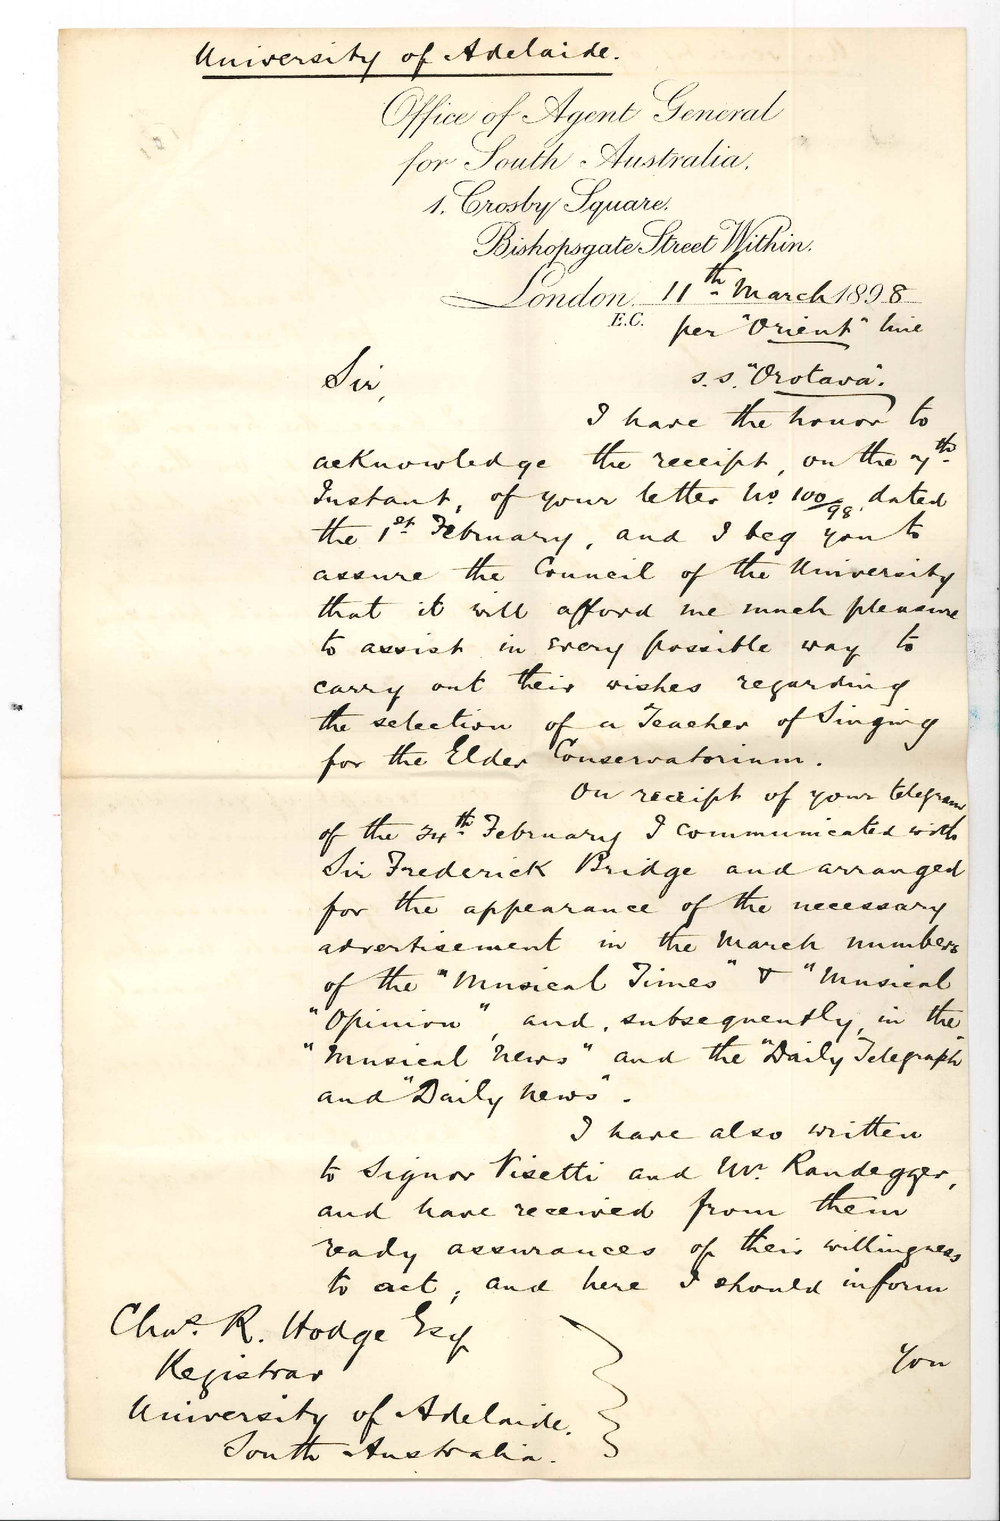 University of Adelaide.
Office of Agent General
for South Australia,
1, Crosby Square,
Bishopsgate Street Within.
London, 11th March 1898
E.C.
per "Orient" line
s.s. "Orotava".
Sir,
I have the honor to
acknowledge the receipt, on the 7th
Instant, of your letter No. 100/98, dated
the 1st February, and I beg you to
assure the Council of the University
that it will afford me much pleasure
to assist in every possible way to
carry out their wishes regarding
the selection of a Teacher of Singing
for the Elder Conservatorium.
On receipt of your telegram
of the 24th February I communicated with
Sir Frederick Bridge and arranged
for the appearance of the necessary
advertisement in the March numbers
of the "Musical Times" & "Musical
"Opinion", and, subsequently, in the
"Musical News" and the "Daily Telegraph"
and "Daily News".
I have also written
to Signor Visetti and Mr. Randegger,
and have received from them
ready assurances of their willingness
to act, and here I should inform
you
Chas. R. Hodge Esq
Registrar
University of Adelaide.
South Australia.